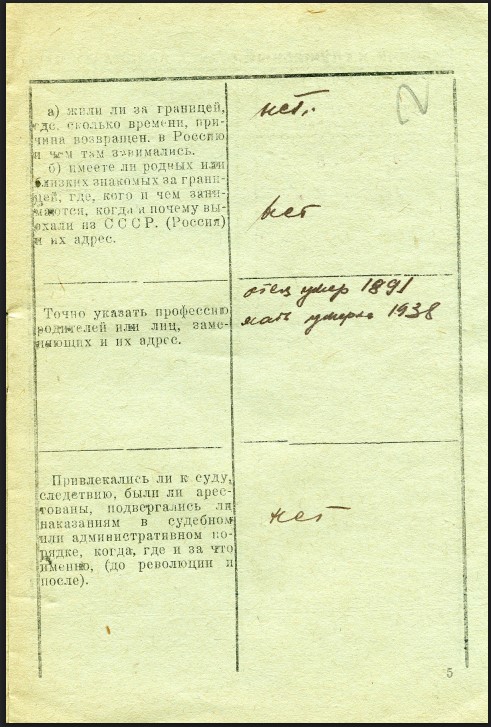 а) жили ли за границей,
где, сколько времени, при-
чина возвращен. в Россию
и чем там занимались.
нет.
б) имеете ли родных или
близких знакомых за грани-
цей, где, кого и чем зани-
маются, когда и почему вы-
ехали из СССР. (Россия)
и их адрес.
нет
Точно указать профессию
родителей или лиц, заме-
няющих и их адрес.
отец умер 1891
мать умерла 1938
Привлекались ли к суду,
следствию, были ли арес-
тованы, подвергались ли
наказаниям в судебном
или административном по-
рядке, когда, где и за что
именно, (до революции и
после).
нет
2
5